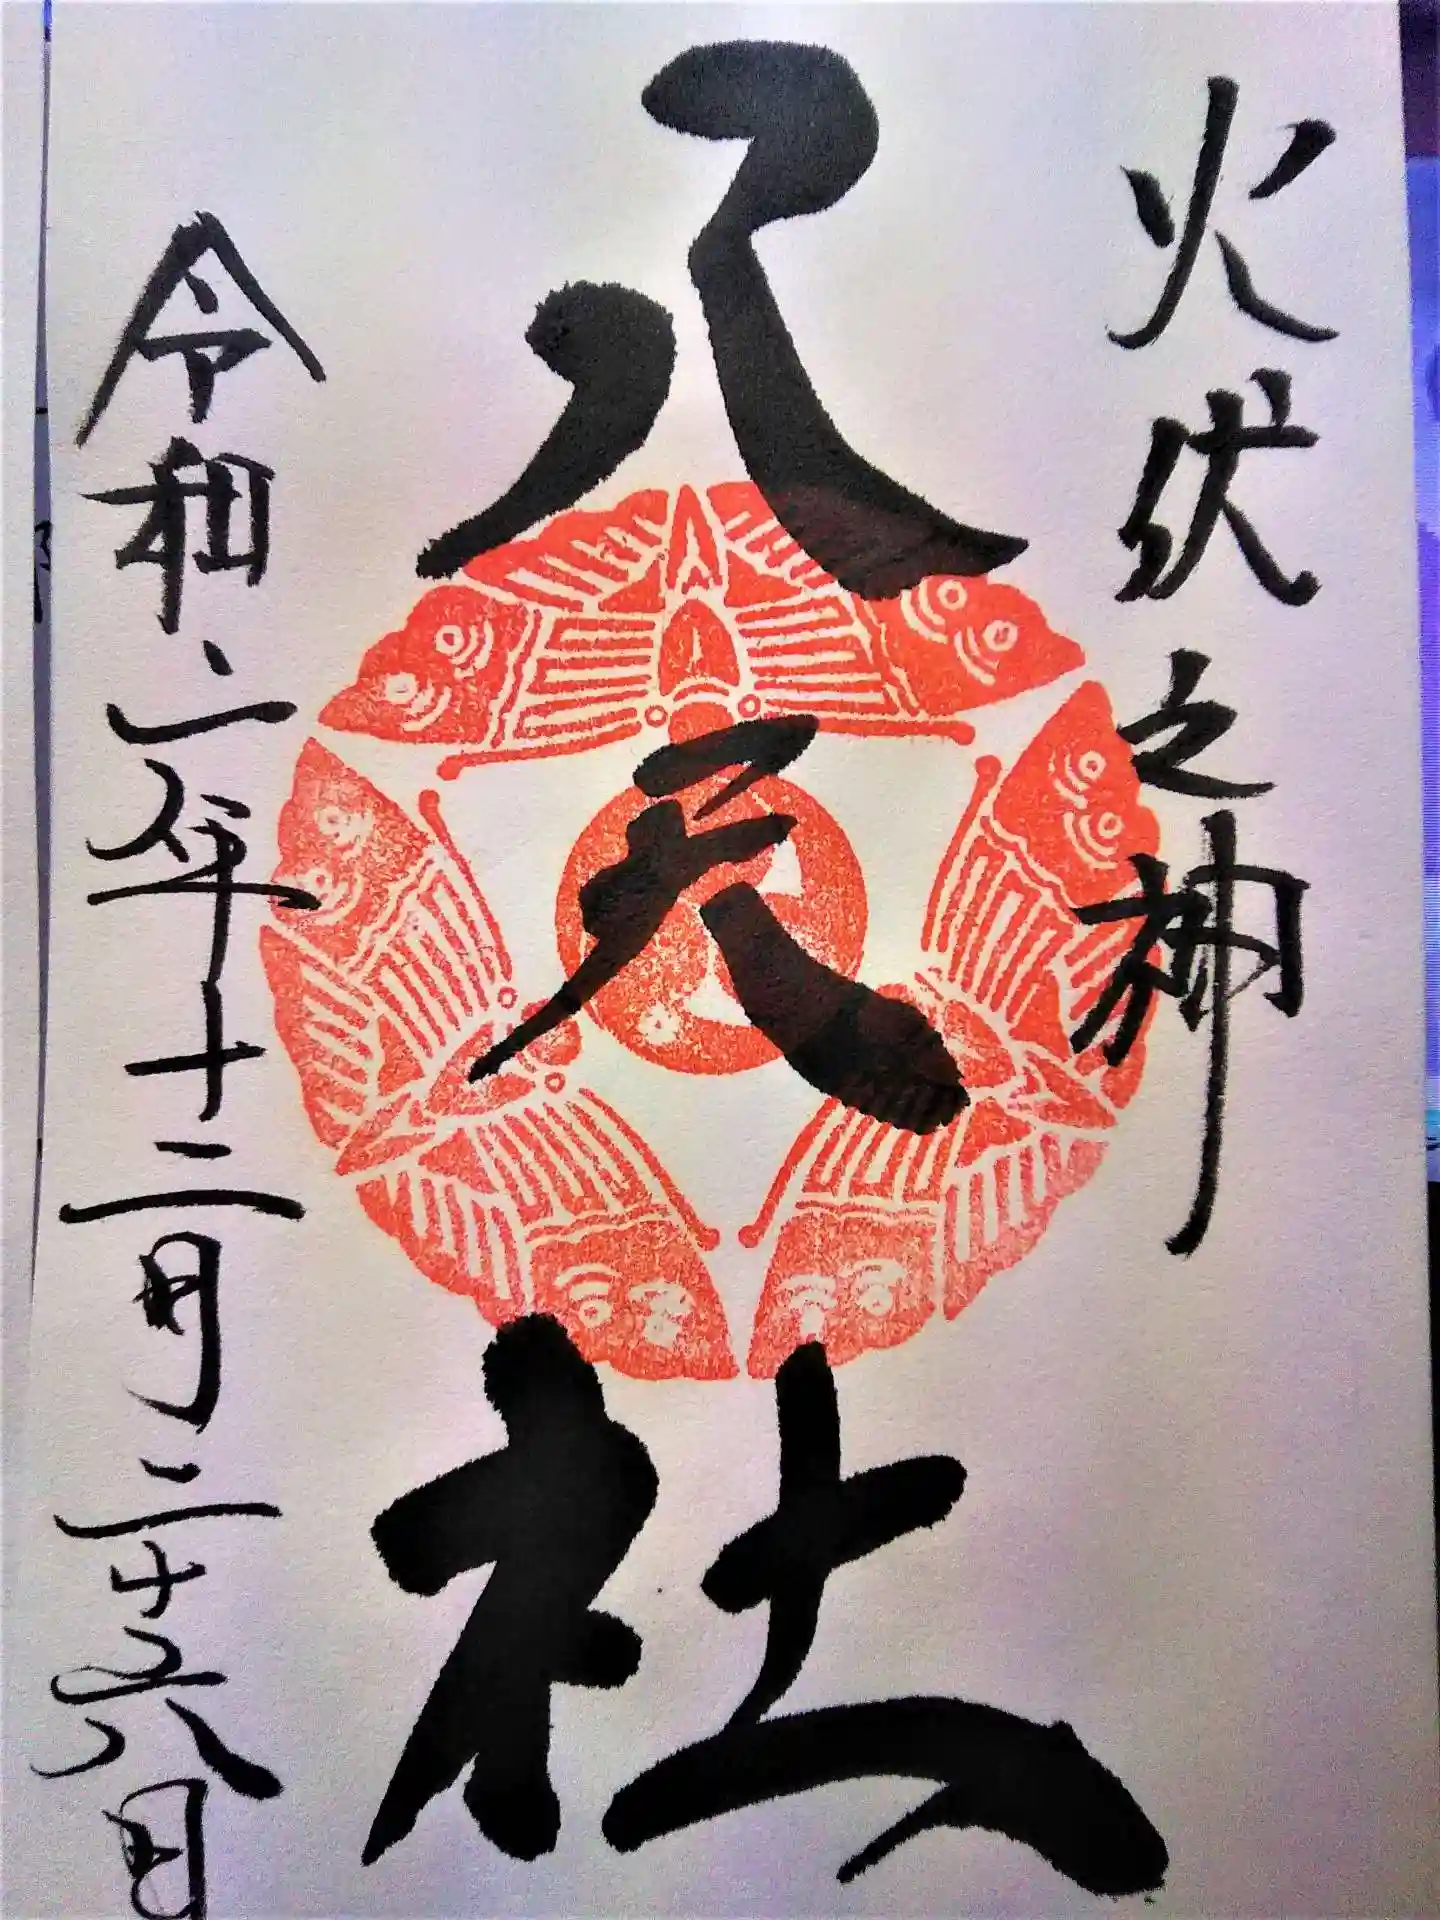 火伏之神
八天社
令和二年十二月二十六日